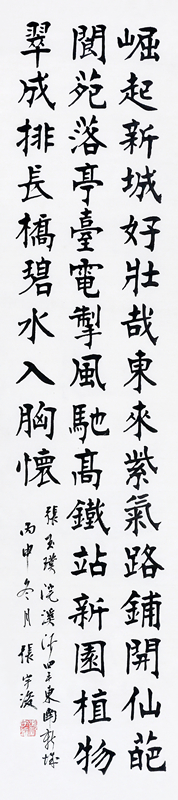 崛起新城好壯哉東來紫氣路鋪開仙葩
閬苑落亭臺電掣風馳高鐵站新園植物
翠成排長橋碧水入胸懷
張玉璞浣溪沙四之東南新城
丙申冬月張宇俊